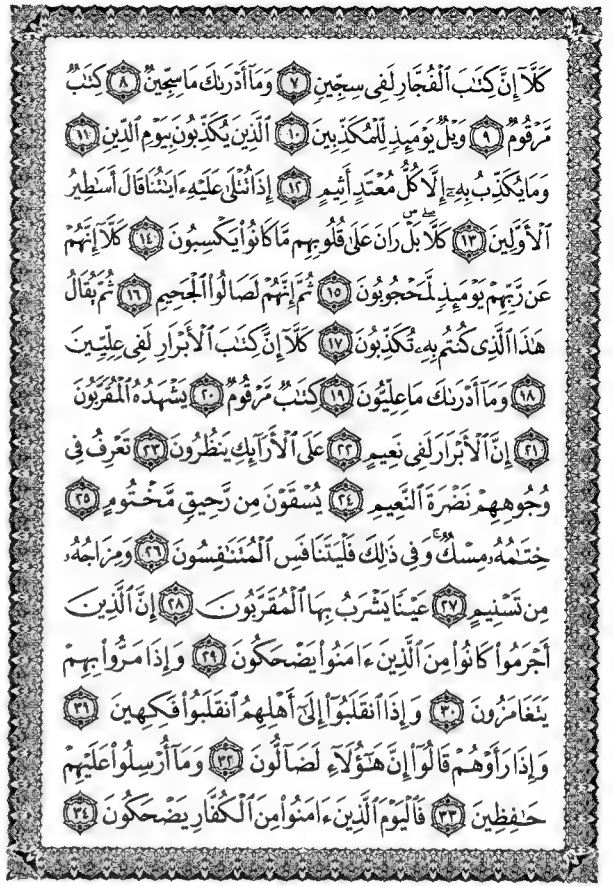 كَلَّآ إِنَّ كِتَٰبَ ٱلْفُجَّارِ لَفِى سِجِّينٍ ﴿٧﴾ وَمَآ أَدْرَىٰكَ مَا سِجِّينٌ ﴿٨﴾ كِتَٰبٌ
مَّرْقُومٌ ﴿٩﴾ وَيْلٌ يَوْمَئِذٍ لِّلْمُكَذِّبِينَ ﴿١٠﴾ ٱلَّذِينَ يُكَذِّبُونَ بِيَوْمِ ٱلدِّينِ ﴿١١﴾
وَمَا يُكَذِّبُ بِهِۦٓ إِلَّا كُلُّ مُعْتَدٍ أَثِيمٍ ﴿١٢﴾ إِذَا تُتْلَىٰ عَلَيْهِ ءَايَٰتُنَا قَالَ أَسَٰطِيرُ
ٱلْأَوَّلِينَ ﴿١٣﴾ كَلَّا ۖ بَلْ ۜ رَانَ عَلَىٰ قُلُوبِهِم مَّا كَانُوا۟ يَكْسِبُونَ ﴿١٤﴾ كَلَّآ إِنَّهُمْ
عَن رَّبِّهِمْ يَوْمَئِذٍ لَّمَحْجُوبُونَ ﴿١٥﴾ ثُمَّ إِنَّهُمْ لَصَالُوا۟ ٱلْجَحِيمِ ﴿١٦﴾ ثُمَّ يُقَالُ
هَٰذَا ٱلَّذِى كُنتُم بِهِۦ تُكَذِّبُونَ ﴿١٧﴾ كَلَّآ إِنَّ كِتَٰبَ ٱلْأَبْرَارِ لَفِى عِلِّيِّينَ
﴿١٨﴾ وَمَآ أَدْرَىٰكَ مَا عِلِّيُّونَ ﴿١٩﴾ كِتَٰبٌ مَّرْقُومٌ ﴿٢٠﴾ يَشْهَدُهُ ٱلْمُقَرَّبُونَ
﴿٢١﴾ إِنَّ ٱلْأَبْرَارَ لَفِى نَعِيمٍ ﴿٢٢﴾ عَلَى ٱلْأَرَآئِكِ يَنظُرُونَ ﴿٢٣﴾ تَعْرِفُ فِى
وُجُوهِهِمْ نَضْرَةَ ٱلنَّعِيمِ ﴿٢٤﴾ يُسْقَوْنَ مِن رَّحِيقٍ مَّخْتُومٍ ﴿٢٥﴾
خِتَٰمُهُۥ مِسْكٌ ۚ وَفِى ذَٰلِكَ فَلْيَتَنَافَسِ ٱلْمُتَنَٰفِسُونَ ﴿٢٦﴾ وَمِزَاجُهُۥ
مِن تَسْنِيمٍ ﴿٢٧﴾ عَيْنًا يَشْرَبُ بِهَا ٱلْمُقَرَّبُونَ ﴿٢٨﴾ إِنَّ ٱلَّذِينَ
أَجْرَمُوا۟ كَانُوا۟ مِنَ ٱلَّذِينَ ءَامَنُوا۟ يَضْحَكُونَ ﴿٢٩﴾ وَإِذَا مَرُّوا۟ بِهِمْ
يَتَغَامَزُونَ ﴿٣٠﴾ وَإِذَا ٱنقَلَبُوٓا۟ إِلَىٰٓ أَهْلِهِمُ ٱنقَلَبُوا۟ فَكِهِينَ ﴿٣١﴾
وَإِذَا رَأَوْهُمْ قَالُوٓا۟ إِنَّ هَٰٓؤُلَآءِ لَضَآلُّونَ ﴿٣٢﴾ وَمَآ أُرْسِلُوا۟ عَلَيْهِمْ
حَٰفِظِينَ ﴿٣٣﴾ فَٱلْيَوْمَ ٱلَّذِينَ ءَامَنُوا۟ مِنَ ٱلْكُفَّارِ يَضْحَكُونَ ﴿٣٤﴾